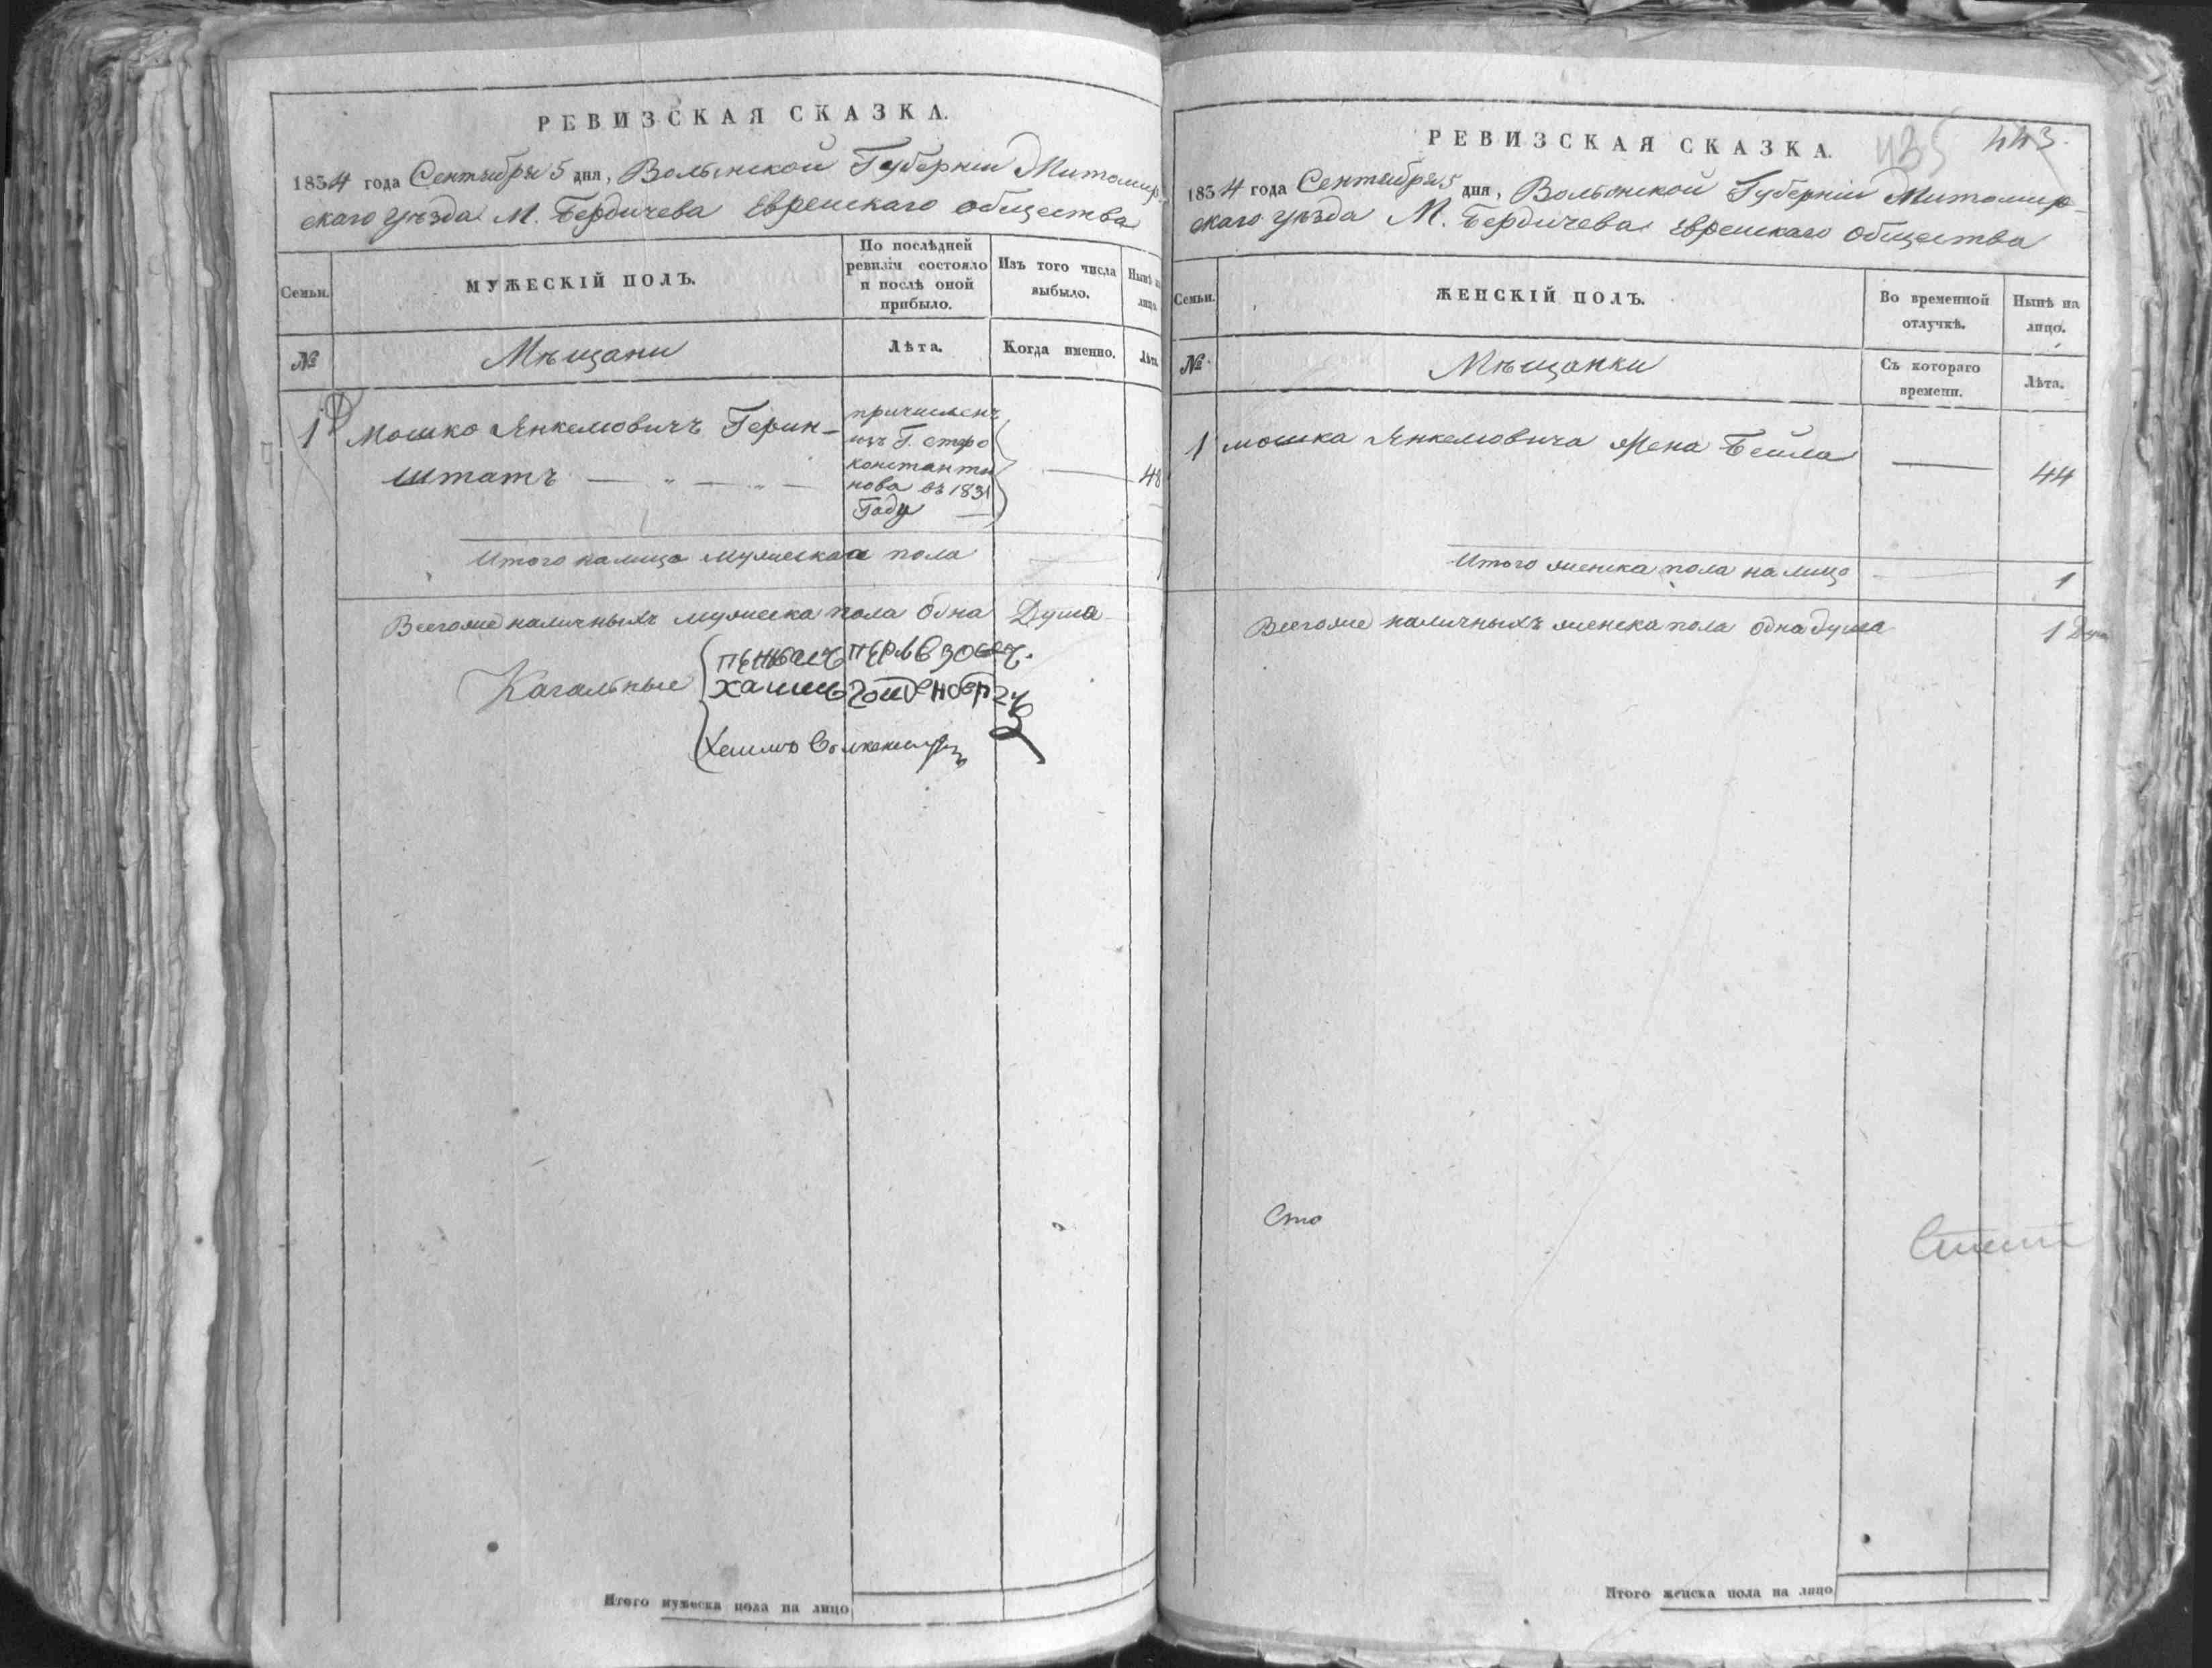 РЕВИЗСКАЯ СКАЗКА.
1834 года Сентября 5 дня, Волынской Губерніи Житомир
скаго уѣзда М. Бердичева Еврейскаго общества
Семьи.
МУЖЕСКІЙ ПОЛЪ.
По послѣдней
ревизіи состояло
и послѣ оной
прибыло.
Изъ того числа
выбыло.
Нынѣ на
лицо.
№
Мѣщани
Лѣта.
Когда именно.
Лѣта.
1
Мошко Янкелювичъ Герин-
штатъ
причисленъ
изъ Г. старо
константи
нова въ 1831
Году
48
Итого налицо мужескаа пола
1
Всегоже наличныхъ мужеска пола одна Душа
Кагальные
Хаимъ
РЕВИЗСКАЯ СКАЗКА.
435 443.
1834 года Сентября 5 дня, Волынской Губерніи Житомир-
скаго уѣзда М. Бердичева Еврейскаго общества
Семьи.
ЖЕНСКІЙ ПОЛЪ.
Во временной
отлучкѣ.
Нынѣ на
лицо.
№
Мѣщанки
Съ котораго
времени.
Лѣта.
1
мошка Янкелювича жена Бейла
44
Итого женска пола налицо
1
Всегоже наличныхъ женска пола одна душа
1 Душа
Сто
Итого мужеска пола на лицо
Итого женска пола на лицо